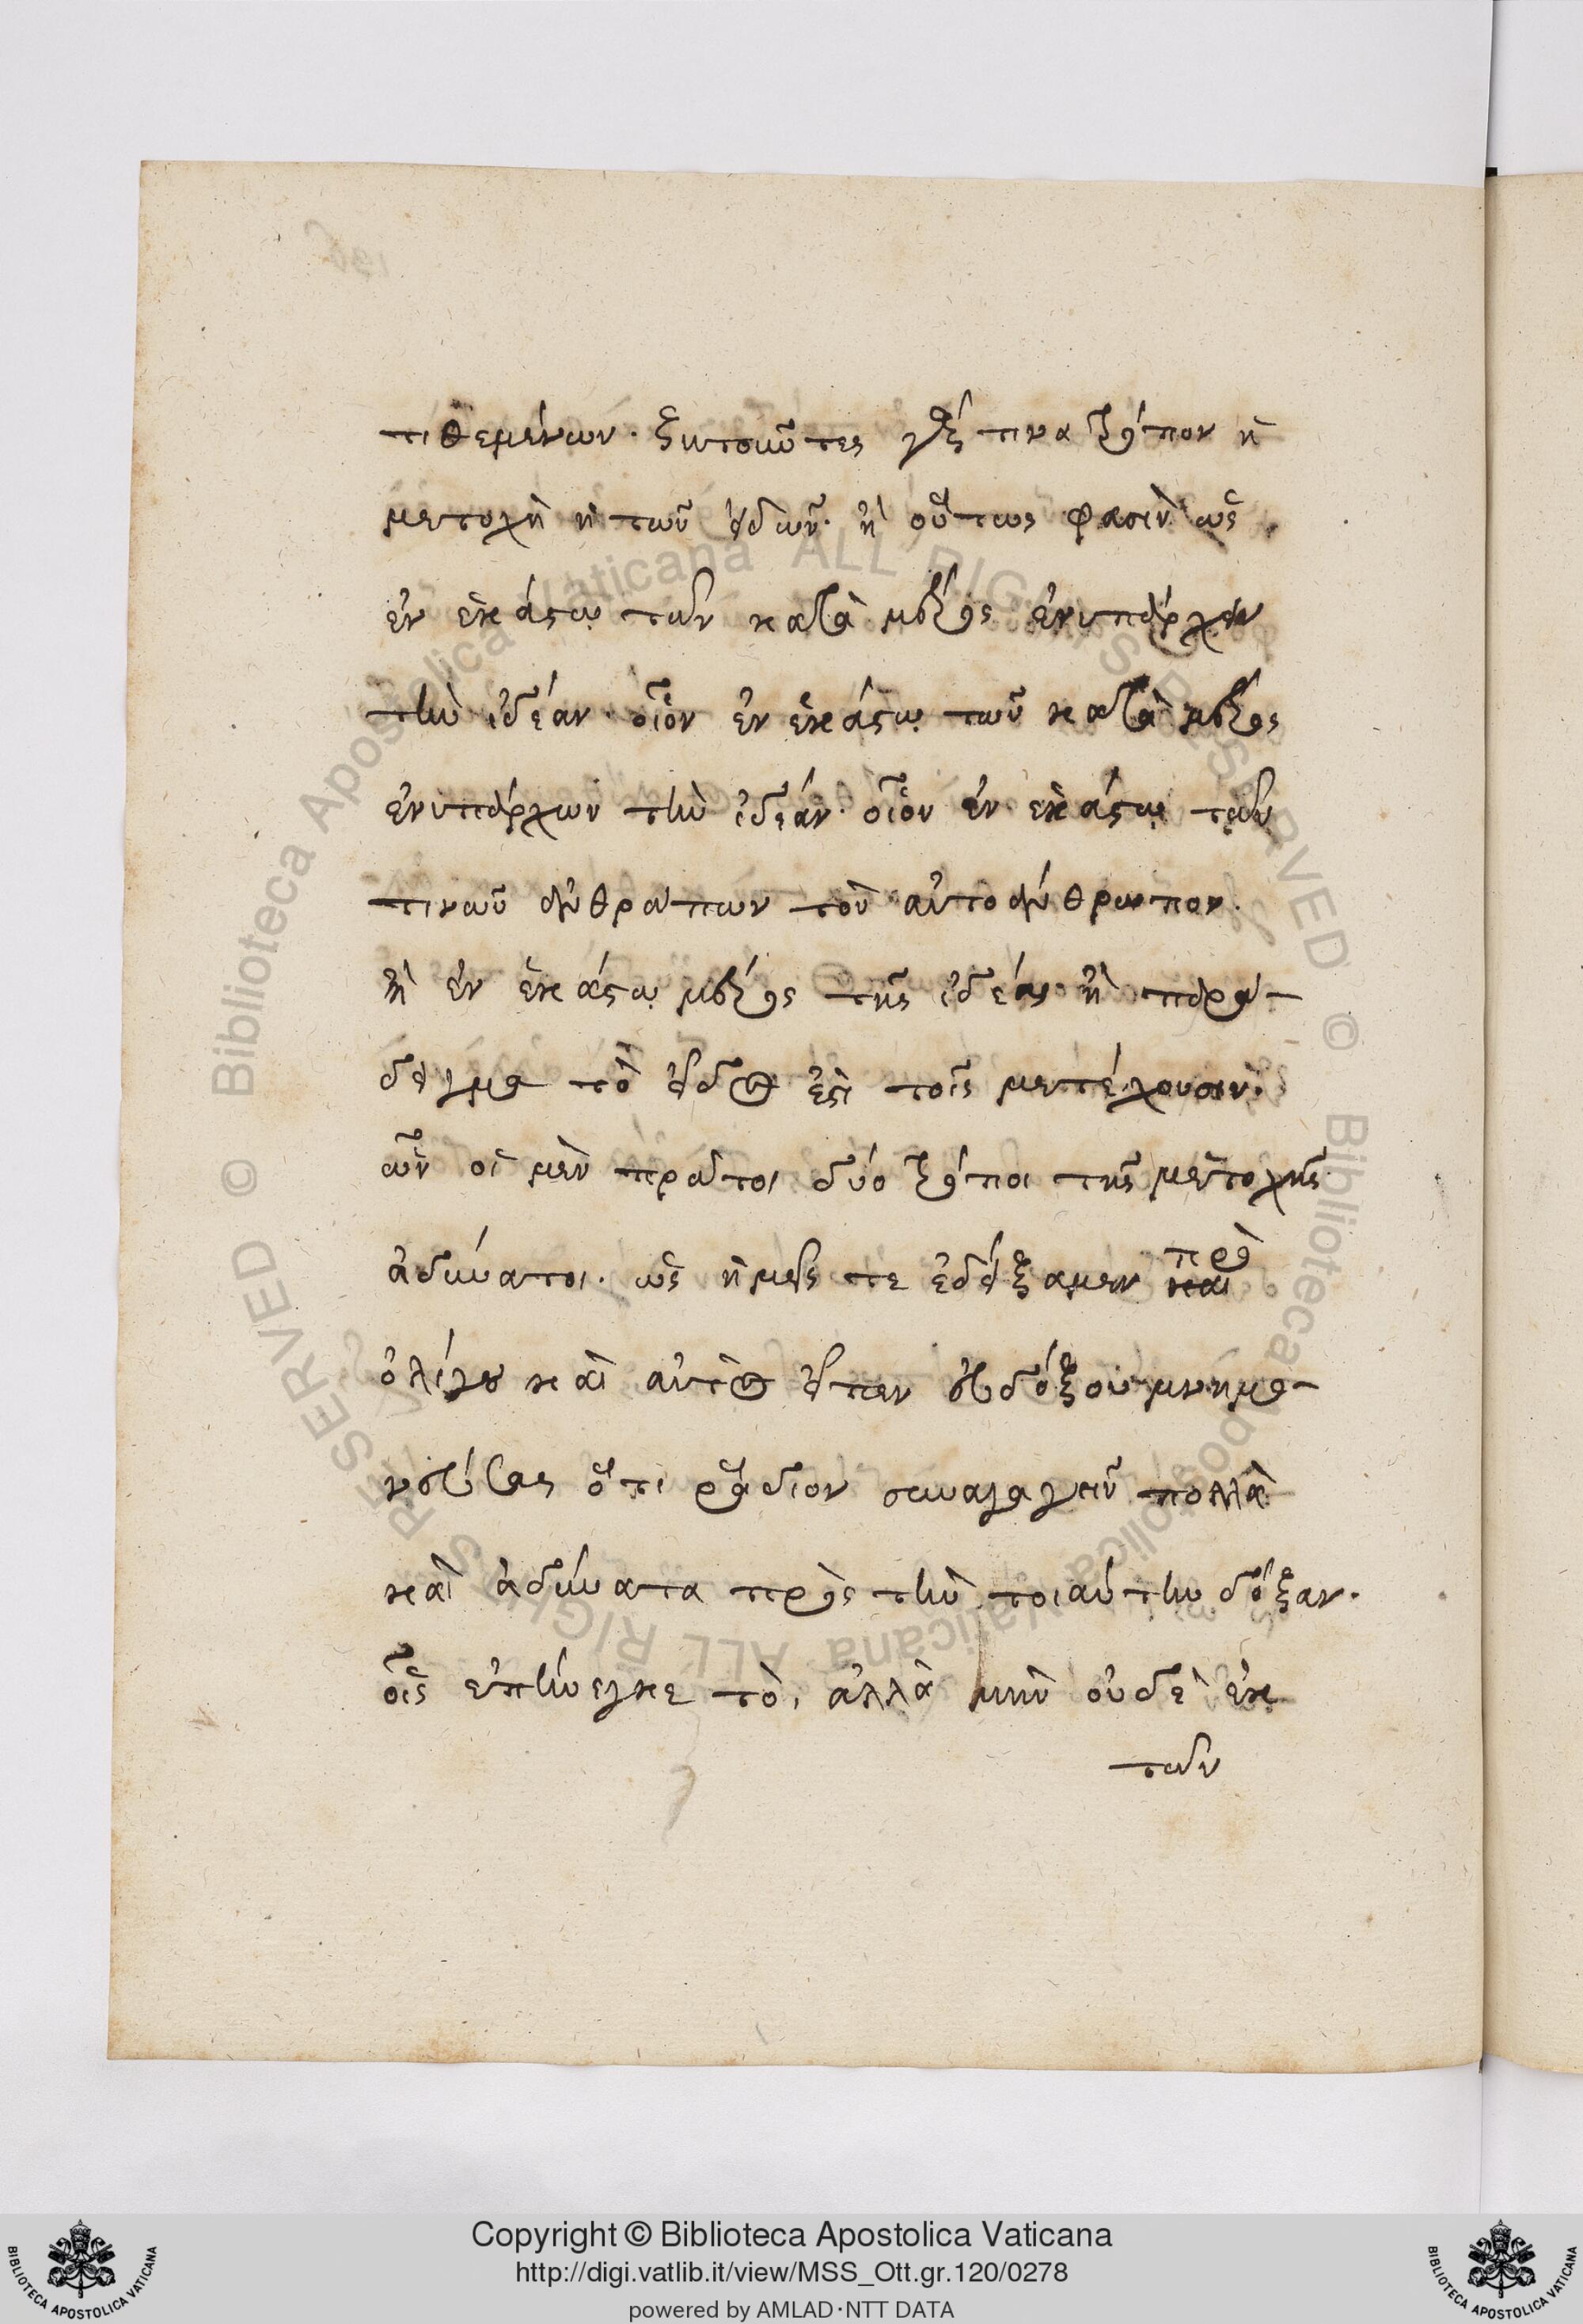 τιθεμένων. ζητοῦντες γὰρ τίνα τρόπον ἡ
μετοχὴ ἡ τῶν εἰδῶν. ἢ οὕτως φασὶν ὡς
ἐν ἑκάστω τῶν κατὰ μέρος ἐνυπάρχειν
τὴν ἰδέαν. οἷον ἐν ἑκάστω τῶν κατὰ μέρος
ἐνυπάρχων τὴν ἰδέαν. οἷον ἐν ἑκάστω τῶν
τινῶν ἀνθρώπων τὸν αὐτοάνθρωπον.
ἢ ἐν ἑκάστω μέρος τῆς ἰδέας ἢ παρά-
δειγμα τὸ εἶδος ἐστὶ τοῖς μετέχουσιν.
ὧν οἱ μὲν πρῶτοι δύο τρόποι τῆς μετοχῆς
ἀδύνατοι. ὡς ἡμεῖς τε ἐδείξαμεν πρὸ
ὀλίγου καὶ αὐτὸς εἶπεν εὐδόξου μνημο-
νεύσας ὅτι ῥάδιον συναγαγεῖν πολλὰ
καὶ ἀδύνατα πρὸς τὴν τοιαύτην δόξαν.
οἷς ἐπήνεγκε τὸ, ἀλλὰ μὴν οὐδὲ ἐκ
τῶν
Copyright © Biblioteca Apostolica Vaticana
http://digi.vatlib.it/view/MSS_Ott.gr.120/0278
powered by AMLAD·NTT DATA
BIBLIOTECA APOSTOLICA VATICANA
BIBLIOTECA APOSTOLICA VATICANA
© Biblioteca Apostolica Vaticana ALL RIGHTS RESERVED
© Biblioteca Apostolica Vaticana ALL RIGHTS RESERVED